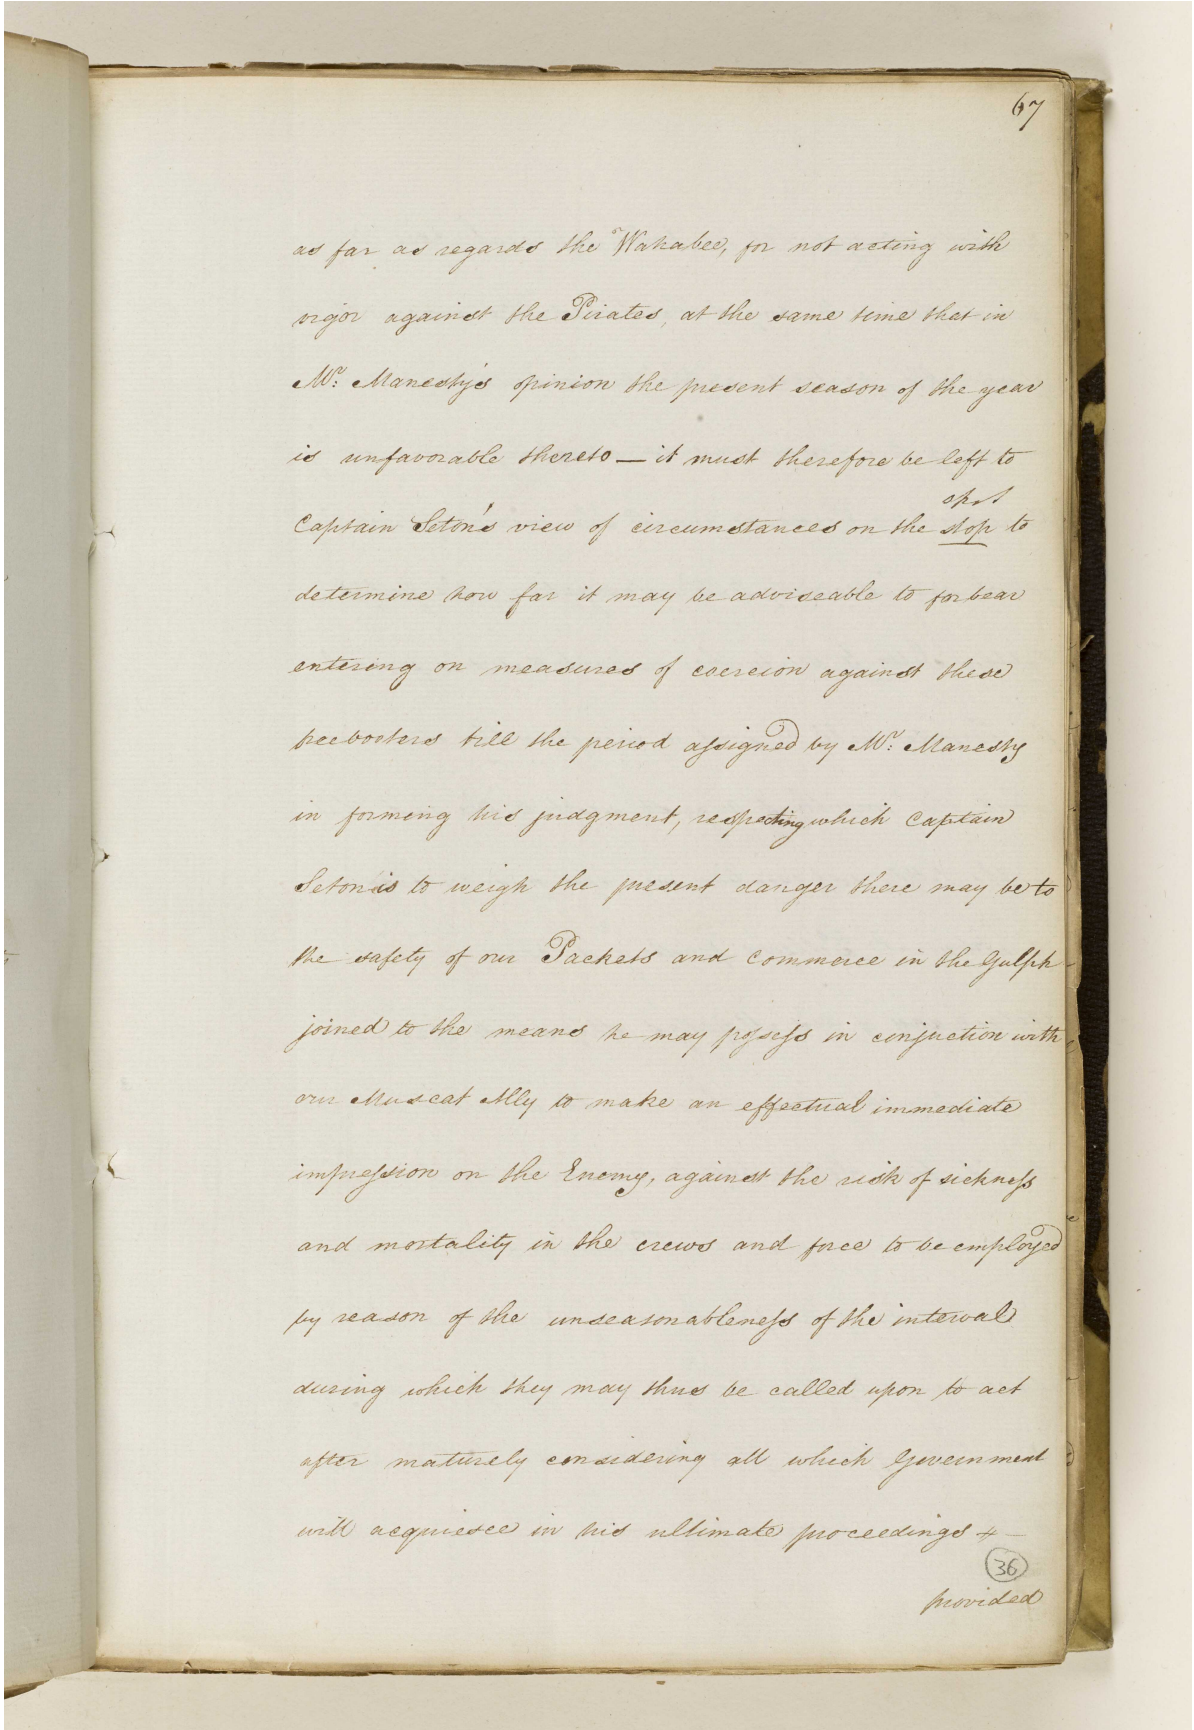 67
as far as regards the Wahabee, for not acting with
vigor against the Pirates, at the same time that in
Mr: Manesty's opinion the present season of the year
is unfavorable thereto — it must therefore be left to
spot
Captain Seton's view of circumstances on the stop to
determine how far it may be adviseable to forbear
entering on measures of coercion against these
freebooters till the period assigned by Mr: Manesty
in forming his judgment, respecting which Captain
Seton is to weigh the present danger there may be to
the safety of our Packets and Commerce in the Gulph
joined to the means he may possess in conjuction with
our Muscat Ally to make an effectual immediate
impression on the Enemy, against the risk of sickness
and mortality in the crews and force to be employed
by reason of the unseasonableness of the interval
during which they may thus be called upon to act
after maturely considering all which Government
will acquiesce in his ultimate proceedings + —
36
provided